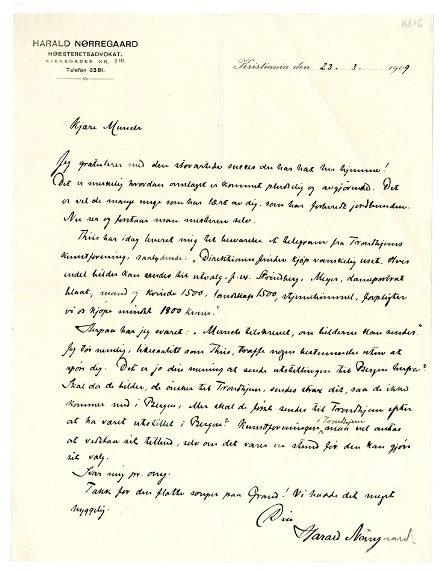 K816
HARALD NØRREGAARD
HØIESTERETSADVOKAT.
KIRKEGADEN NR.
Telefon 8281.
Kristiania den 23 - 3 - 1909
Kjære Munch
Jeg gratulerer med den storartede succes du har hat her hjemme!
Det er merkelig hvordan omslaget er kommet pludselig og avgjørende. Det
er vel de mange unge som har lært av dig, som har forberedt jordbunden.
Nu ser og forstaar man mesteren selv.
Thiis har idag leveret mig til besvarelse et telegram fra Trondhjems
Kunstforening, saalydende: "Direktionen finder kjøp vanskelig uset. Hvis
endel billeder kan sendes til utvalg, f. ex. Strindberg, Meyer, dameportræt
blaat, mand og kvinde 1500, landskap 1500, stjernehimmel, forpligter
vi os kjøpe mindst 1800 kroner."
Herpaa har jeg svaret: "Munch telefoneret, om billederne kan sendes."
Jeg tør nemlig, likesaalitt som Thiis, træffe nogen bestemmelse uten at
spørre dig. Det er jo din mening at sende utstillingen til Bergen herfra?
Skal da de billeder, de ønsker til Trondhjem, sendes strax dit, saa de ikke
kommer med i Bergen, eller skal de først sendes til Trondhjem efter
at ha været utstillet i Bergen? Kunstforeningen i Trondhjem maa vel ansees
at vedstaa sit tilbud, selv om det varer en stund før den kan gjøre
sit valg.
Svar mig pr. omg.
Takk for den flotte souper paa Grand! Vi hadde det meget
hyggelig.
Din
Harald Nørregaard.